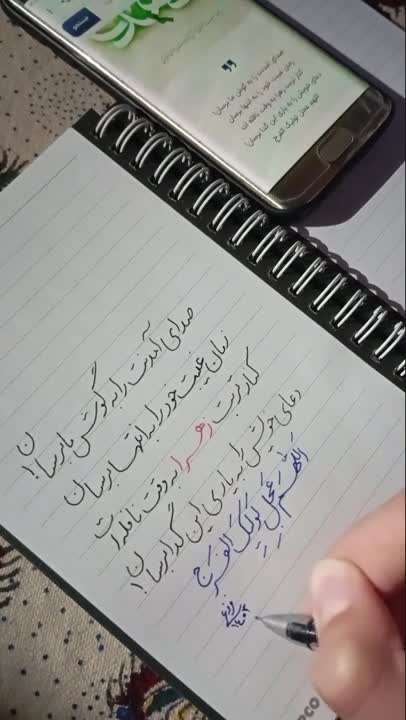 صدای آمدنت را به گوش ما برسان!
زمان غیبت خود را به انتها برسان
کنار تربت زهرا به وقت نافله ات
دعای خویش را به یاری این گدا برسان!
اللهم عجل لولیک الفرج
صدای آمدنت را به گوش ما برسان!
زمان غیبت خود را به انتها برسان
کنار تربت زهرا به وقت نافله‌ات
دعای خویش را به یاری این گدا برسان!
اَللّهُمَّ عَجِّل لِوَلیِّکَ الفَرَج
۱۴۰۲